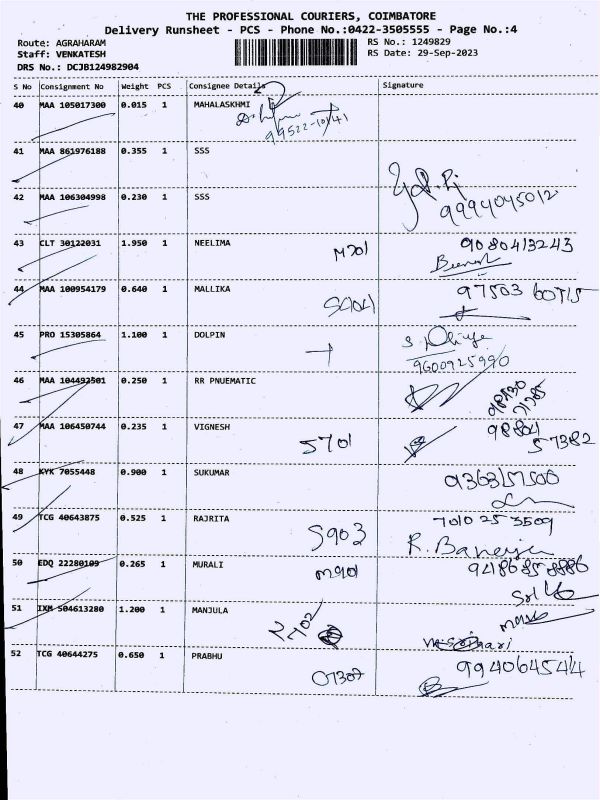 THE PROFESSIONAL COURIERS, COIMBATORE
Delivery Runsheet - PCS - Phone No.:0422-3505555 - Page No.:4
Route: AGRAHARAM
RS No.: 1249829
Staff: VENKATESH
RS Date: 29-Sep-2023
DRS No.: DCJB124982904
S No Consignment No Weight PCS Consignee Details Signature
40 MAA 105017300 0.015 1 MAHALASKHMI
41 MAA 861976188 0.355 1 SSS
42 MAA 106304998 0.230 1 SSS
9994045012
43 CLT 30122031 1.950 1 NEELIMA M701 9080413243
44 MAA 100954179 0.640 1 MALLIKA 97503 60715
S404
45 PRO 15305864 1.100 1 DOLPIN
9600925990
46 MAA 104492501 0.250 1 RR PNUEMATIC
47 MAA 106450744 0.235 1 VIGNESH 5701 98804
57382
48 KYK 7055448 0.900 1 SUKUMAR 9363157500
49 TCG 40643875 0.525 1 RAJRITA S903 7010253509
R. Banerjee
50 EDQ 22280109 0.265 1 MURALI M901
51 IXM 504613280 1.200 1 MANJULA 2702
52 TCG 40644275 0.650 1 PRABHU 07307 9940645444